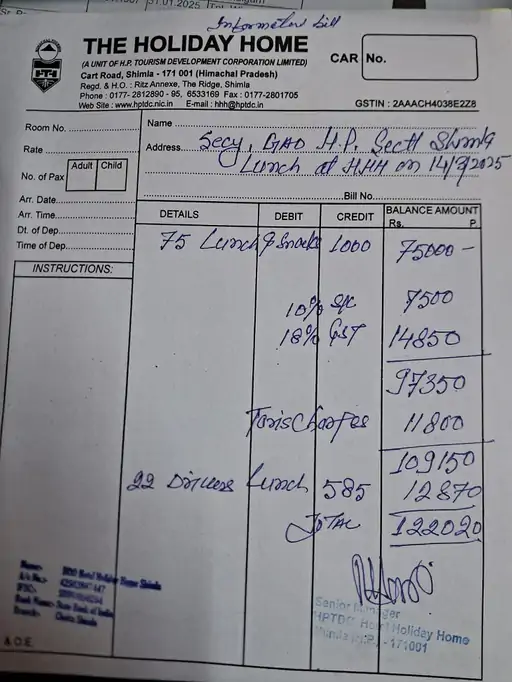 31.01.2025
Information bill
THE HOLIDAY HOME
(A UNIT OF H.P. TOURISM DEVELOPMENT CORPORATION LIMITED)
Cart Road, Shimla - 171 001 (Himachal Pradesh)
Regd. & H.O. : Ritz Annexe, The Ridge, Shimla
Phone : 0177- 2812890 - 95, 6533169 Fax : 0177-2801705
Web Site : www.hptdc.nic.in E-mail : hhh@hptdc.in
CAR No.
GSTIN : 2AAACH4038E2Z8
Room No.
Name
Rate
Address Secy, GAD H.P. Sectt Shimla
Lunch at HHH on 14/3/2025
No. of Pax Adult Child
Bill No.
Arr. Date
Arr. Time
Dt. of Dep.
Time of Dep.
DETAILS DEBIT CREDIT BALANCE AMOUNT
Rs. P.
INSTRUCTIONS:
75 Lunch & Snacks 1000 75000 -
10% S/C 7500
18% GST 14850
97350
Charges 11800
109150
22 Drivers Lunch 585 12870
TOTAL 122020
Name:
A/c No.:
IFSC:
Bank Name: State Bank of India
Branch:
Senior Manager
HPTDC Hotel Holiday Home
Shimla (H.P.) - 171001
& O.E.